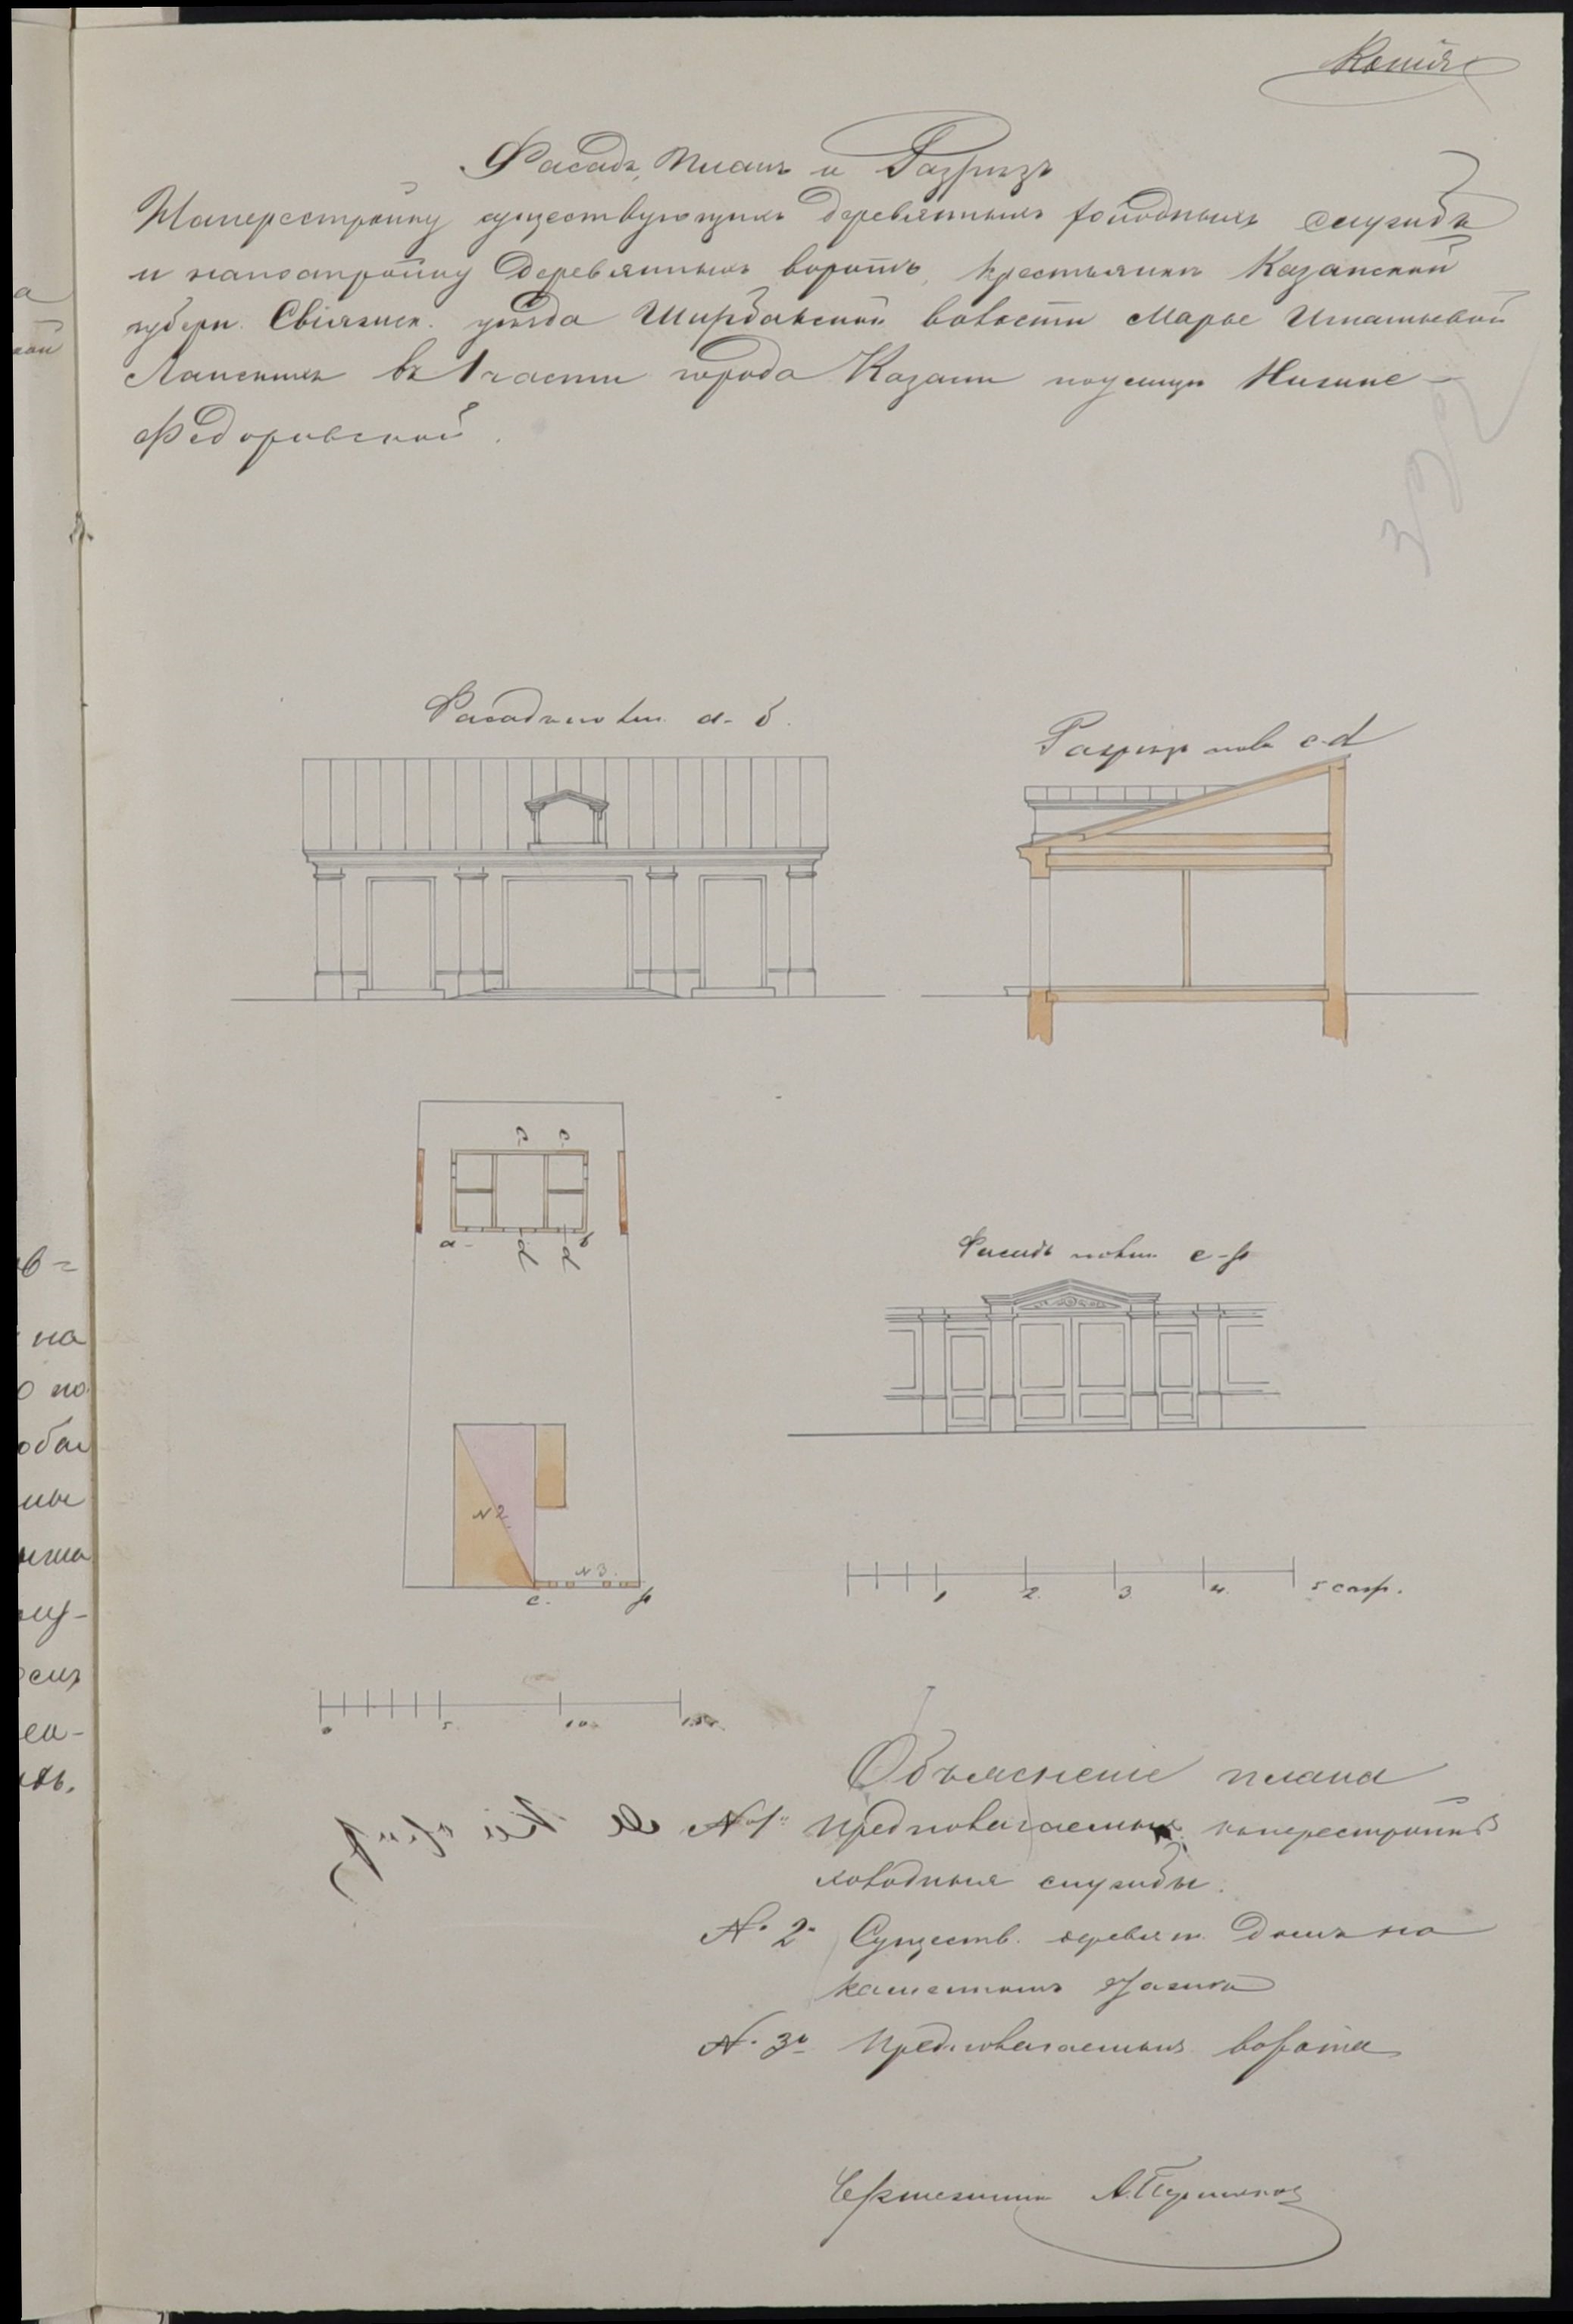 Копія
Фасадъ, Планъ и Разрѣзъ
На перестройку существующихъ деревянныхъ холодныхъ службъ
и на постройку деревянныхъ воротъ, крестьянкѣ Казанской
губерн. Свіяжск. уѣзда Ширданской волости Марье Игнатьевой
въ 1 части города Казани по улицѣ Нижне-
Федоровской.
392
Фасадъ по лин. а-б.
Разрѣзъ по ли c-d
а
б
Фасадъ по лин. e-f
N 2.
N 3.
e.
f
1 2. 3 4. 5 саж.
0 5. 10. 15 с.
Объясненіе плана
№ 1й Предполагаемыя къ перестройкѣ
холодныя службы.
№ 2й Существ. деревян. домъ на
каменномъ этажѣ
№ 3й Предполагаемыя ворота
Чертежникъ А.
а
кой
в=
на
о по
обог
ны
му-